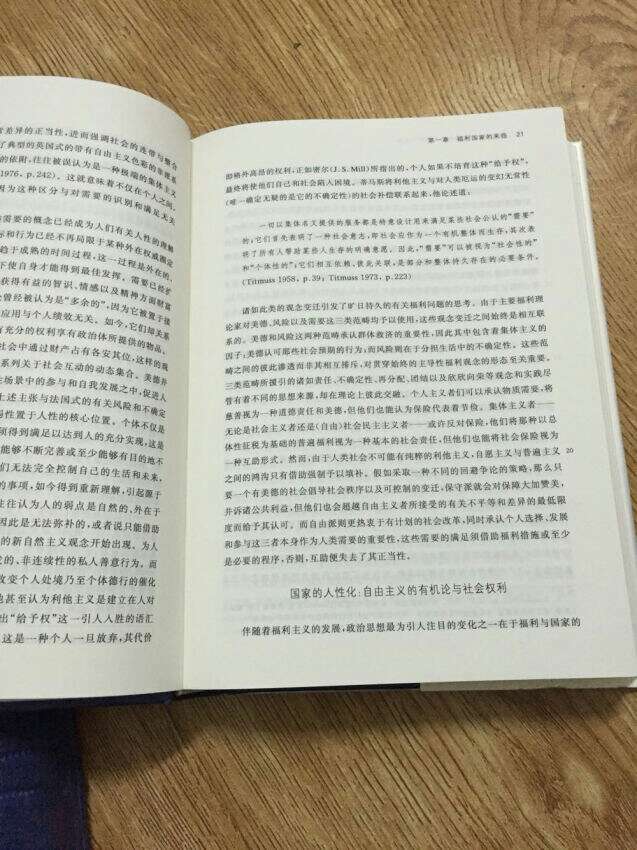 差异的正当性,进而强调社会的连带与整合
了典型的英国式的带有自由主义色彩的非联系
的依附,往往被误认为是一种极端的集体主义
1976, p.242)。这就意味着不仅在个人之间,
因为这种区分与对需要的识别和满足无关
需要的概念已经成为人们有关人性的理解
标和行为已经不再局限于某种外在权威确定
趋于成熟的时间过程,这一过程是外在的,
不使自身才能得到最佳发挥。需要已经扩
获得有益的智识、情感以及精神方面财富
曾经被认为是“多余的”,因为它被置于接
应用与个人绩效无关。如今,它们却关系
有充分的权利享有政治体所提供的物品、
社会中通过财产占有各安其位,这样的观
系列关于社会互动的动态集合。美德并
生场景中的参与和自我发展之中,促进人
上述主张与法国式的有关风险和不确定
易性置于人性的核心位置。个体不仅是
须得到满足以达到人的充分实现,这是
能够不断完善或至少能够有目的地不
们无法完全控制自己的生活和未来,
的事项,如今得到重新理解,引起源于
往往认为人的弱点是自然的、外在于
因此是无法弥补的,或者说只能借助
的新自然主义观念开始出现。为人
发的、非连续性的私人善意行为。而
改变个人处境乃至个体德行的催化
他甚至认为利他主义是建立在人对
出“给予权”这一引人入胜的语汇
这是一种个人一旦放弃,其代价
第一章 福利国家的来临 21
即格外高昂的权利,正如密尔(J. S. Mill)所指出的,个人如果不培育这种“给予权”,
最终将使他们自己和社会陷入困境。蒂马斯将利他主义与对人类厄运的变幻无常性
(唯一确定无疑的是它的不确定性)的社会补偿联系起来,他论述道:
一切以集体名义提供的服务都是特意设计用来满足某些社会公认的“需要”
的;它们首先表明了一种社会意志,即社会应作为一个有机整体而生存,其次表
明了所有人帮助某些人生存的明确意愿。因此,“需要”可以被视为“社会性的”
和“个体性的”;它们相互依赖、彼此关联,是部分和整体持久存在的必要条件。
(Titmuss 1958, p.39; Titmuss 1973, p.223)
诸如此类的观念变迁引发了旷日持久的有关福利问题的思考。由于主要福利理
论家对美德、风险以及需要这三类范畴均予以使用,这些观念变迁之间始终是相互联
系的。美德和风险这两种范畴承认群体救济的重要性,因此其中包含着集体主义的
因子;美德认可那些社会预期的行为;而风险则在于分担生活中的不确定性。这些范
畴之间的彼此渗透而非其相互排斥,对贯穿始终的主导性福利观念的形态至关重要。
三类范畴所援引的诸如责任、不确定性、再分配、团结以及欣欣向荣等观念和实践尽
管有着不同的思想来源,却在理论上彼此交融。个人主义者们可以承认物质需要,将
慈善视为一种道德责任和美德,但他们也能认为保险代表着节俭。集体主义者——
无论是社会主义者还是(自由)社会民主主义者——或许反对保险,他们将那种以总
体性征税为基础的普遍福利视为一种基本的社会责任,但他们也能将社会保险视为
一种互助形式。然而,由于人类社会不可能有纯粹的利他主义,自愿主义与普遍主义 20
之间的鸿沟只有借助强制予以填补。假如采取一种不同的回避争论的策略,那么只
要一个有美德的社会倡导社会秩序以及可控制的变迁,保守派就会对保障大加赞美,
并诉诸公共利益,但他们也会超越自由主义者所接受的有关不平等和差异的最低限
度而给予其认可。而自由派则更热衷于有计划的社会改革,同时承认个人选择、发展
和参与这三者本身作为人类需要的重要性,这些需要的满足须借助福利措施或至少
是必要的程序,否则,互助便失去了其正当性。
国家的人性化:自由主义的有机论与社会权利
伴随着福利主义的发展,政治思想最为引人注目的变化之一在于福利与国家的